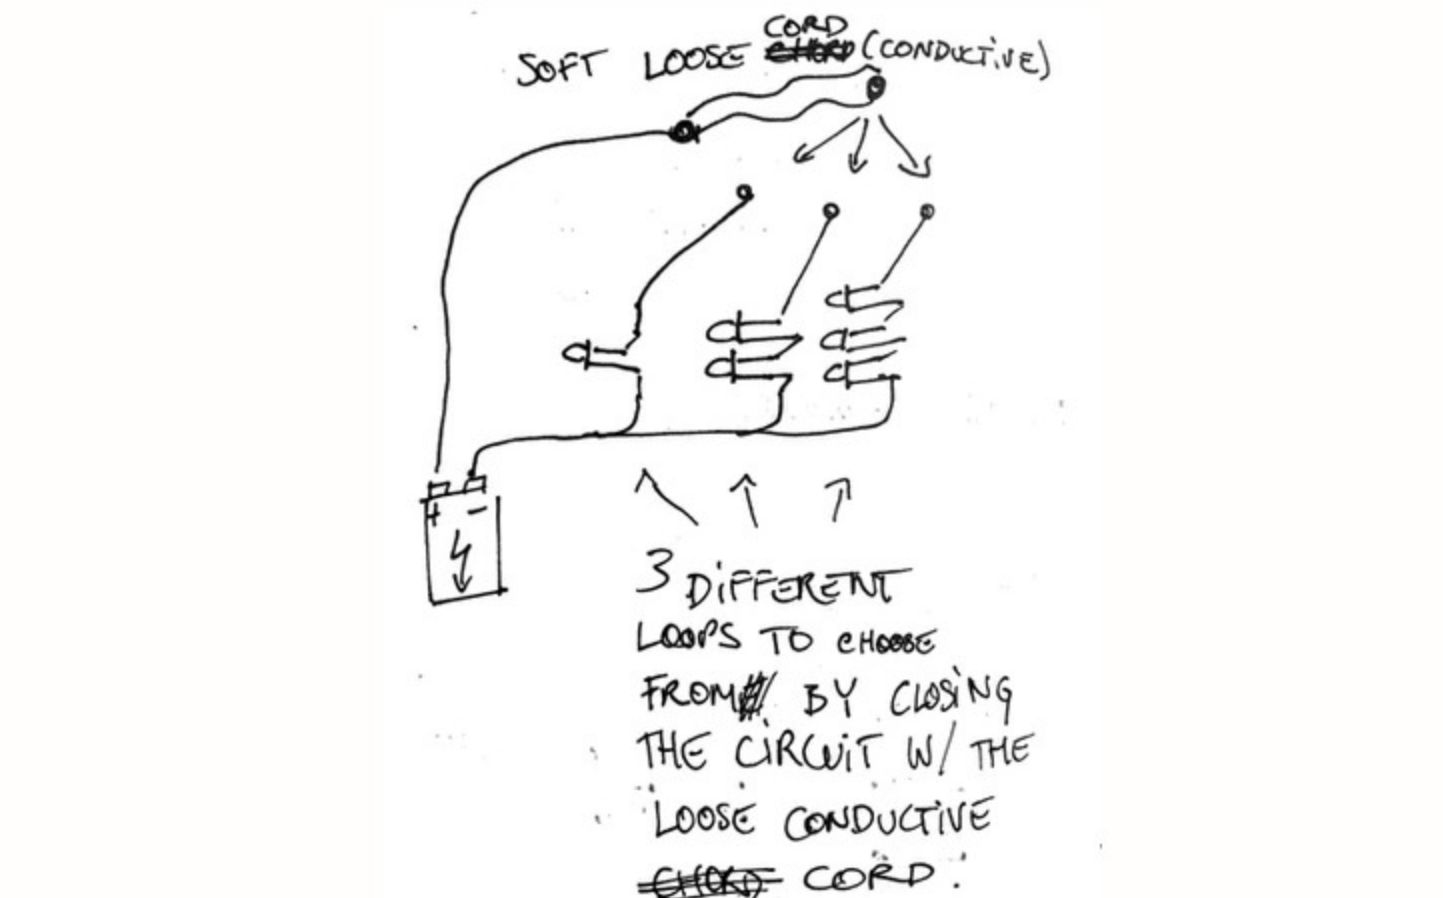 CORD
SOFT LOOSE CHORD (CONDUCTIVE)
+ -
3 DIFFERENT
LOOPS TO CHOOSE
FROM BY CLOSING
THE CIRCUIT W/ THE
LOOSE CONDUCTIVE
CHORD CORD.